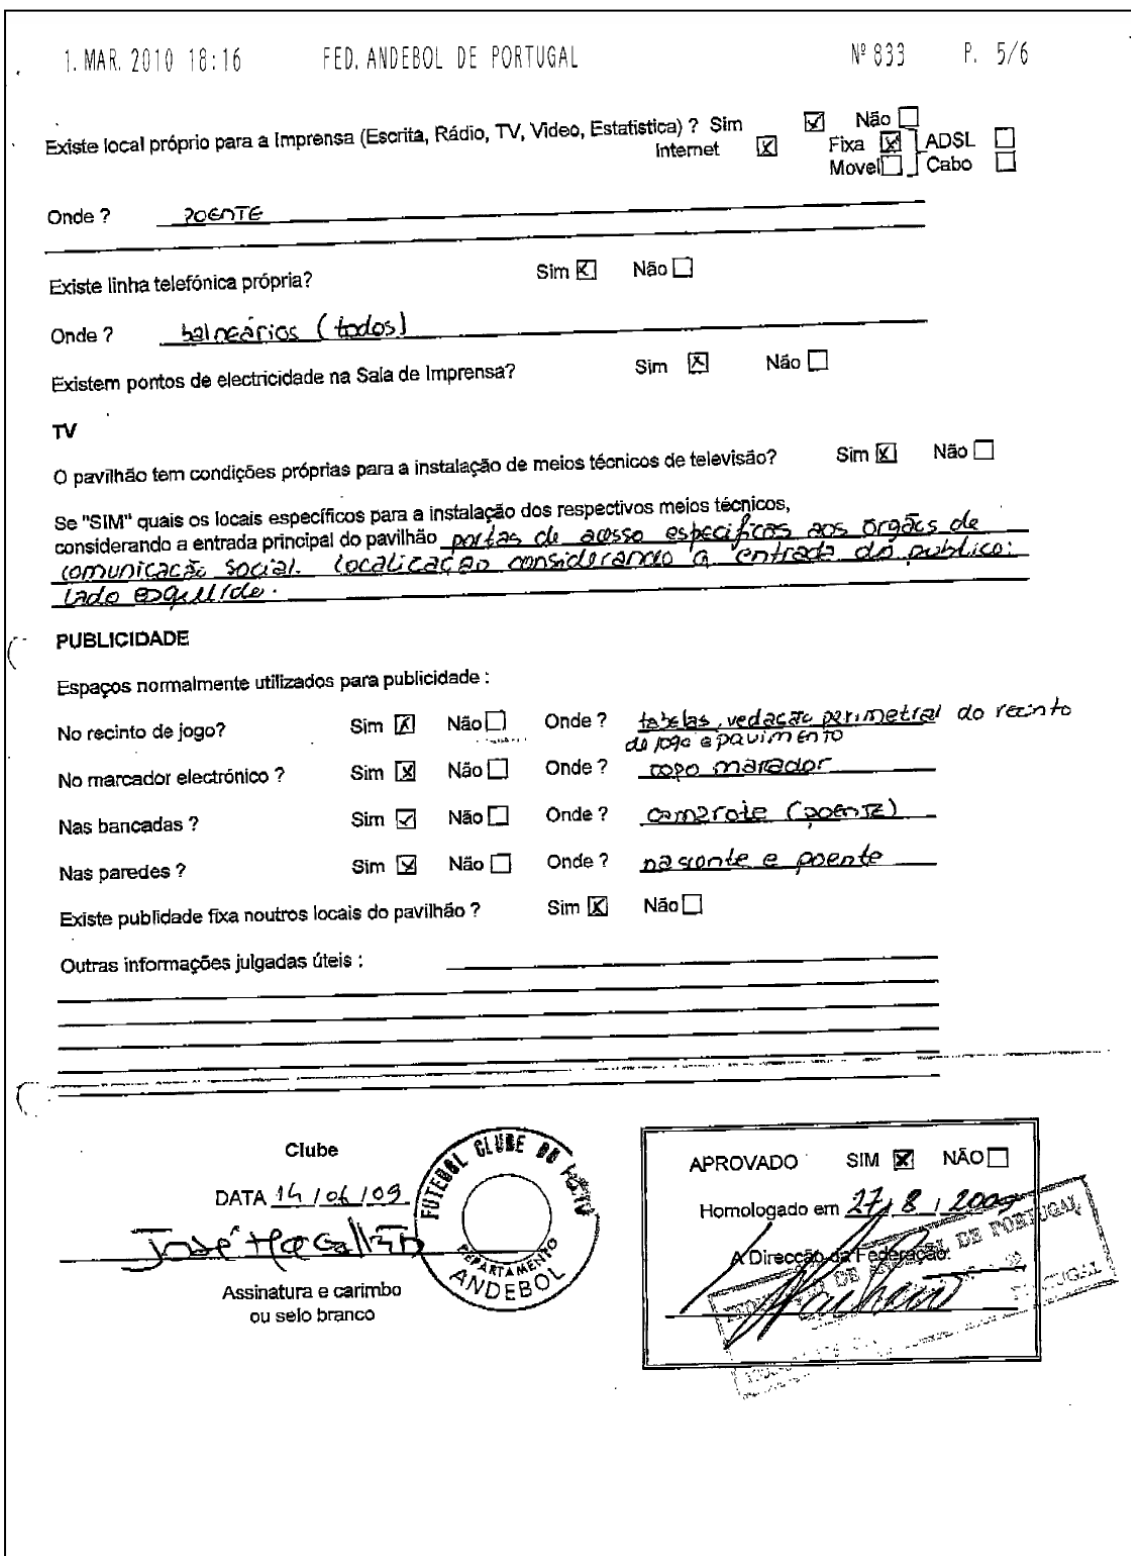 1. MAR. 2010 18:16 FED. ANDEBOL DE PORTUGAL Nº 833 P. 5/6
Existe local próprio para a Imprensa (Escrita, Rádio, TV, Video, Estatística) ? Sim ☑ Não ☐
Internet ☒ Fixa ☒ ADSL ☐
Movel ☐ Cabo ☐
Onde ? POENTE
Existe linha telefónica própria? Sim ☒ Não ☐
Onde ? balneários (todos)
Existem pontos de electricidade na Sala de Imprensa? Sim ☒ Não ☐
TV
O pavilhão tem condições próprias para a instalação de meios técnicos de televisão? Sim ☒ Não ☐
Se "SIM" quais os locais específicos para a instalação dos respectivos meios técnicos,
considerando a entrada principal do pavilhão portas de acesso especificas aos orgãos de
comunicação social. localização considerando a entrada do publico:
lado
PUBLICIDADE
Espaços normalmente utilizados para publicidade :
No recinto de jogo? Sim ☒ Não ☐ Onde ? tabelas, vedação perimetral do recinto
de jogo e pavimento
No marcador electrónico ? Sim ☒ Não ☐ Onde ?
Nas bancadas ? Sim ☑ Não ☐ Onde ? camarote (poente)
Nas paredes ? Sim ☒ Não ☐ Onde ? nascente e poente
Existe publidade fixa noutros locais do pavilhão ? Sim ☒ Não ☐
Outras informações julgadas úteis :
Clube
DATA 14 / 06 / 09
José
Assinatura e carimbo
ou selo branco
FUTEBOL CLUBE DO PORTO
DEPARTAMENTO
ANDEBOL
APROVADO SIM ☒ NÃO ☐
Homologado em 27 / 8 / 2009
A Direcção da Federação:
FEDERAÇÃO DE ANDEBOL DE PORTUGAL
PORTUGAL